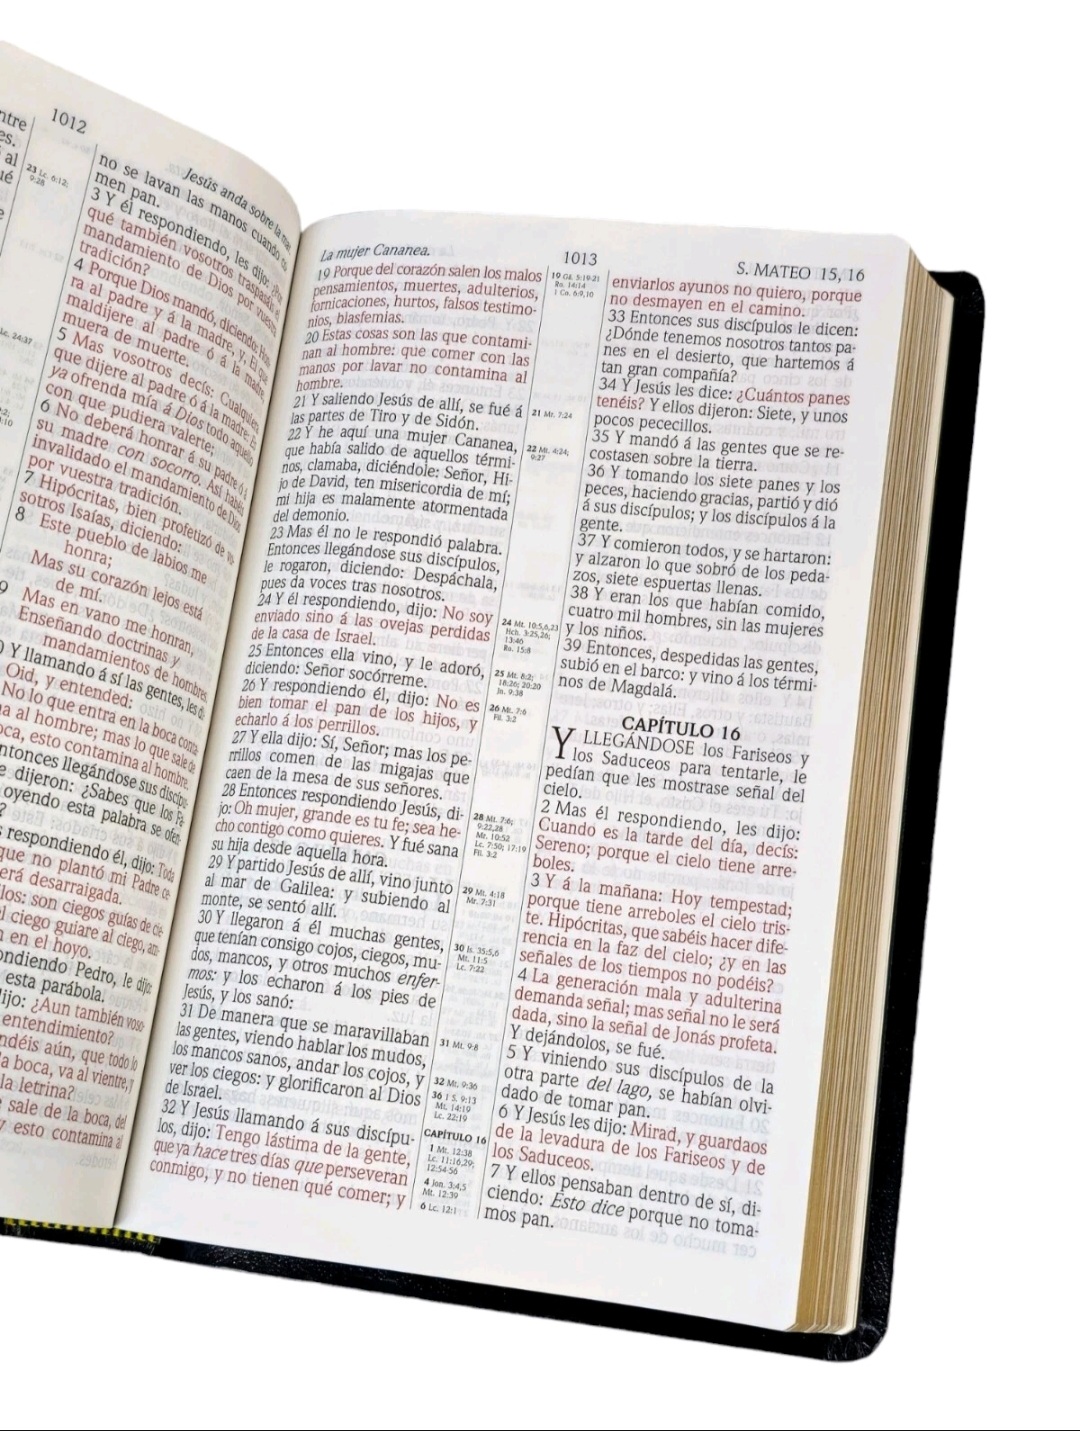 1012
Jesús anda sobre la mar.
ntre
es.
al
ué
23 Lc. 6:12;
9:28
Lc. 24:37
no se lavan las manos cuando co
men pan.
3 Y él respondiendo, les dijo: ¿Por
qué también vosotros traspasáis el
mandamiento de Dios por vuestra
tradición?
4 Porque Dios mandó, diciendo: Honra
ra al padre y á la madre, y, El que
maldijere al padre ó á la madre,
muera de muerte.
5 Mas vosotros decís: Cualquiera
que dijere al padre ó á la madre: Es
ya ofrenda mía á Dios todo aquello
con que pudiera valerte;
6 No deberá honrar á su padre ó á
su madre con socorro. Así habéis
invalidado el mandamiento de Dios
por vuestra tradición.
7 Hipócritas, bien profetizó de vo-
sotros Isaías, diciendo:
8 Este pueblo de labios me
honra;
Mas su corazón lejos está
de mí.
9 Mas en vano me honran,
Enseñando doctrinas y
mandamientos de hombres.
Y llamando á sí las gentes, les di
Oid, y entended:
No lo que entra en la boca conta
na al hombre; mas lo que sale de
oca, esto contamina al hombre.
ntonces llegándose sus discípu
e dijeron: ¿Sabes que los Fa
oyendo esta palabra se ofen
?
s respondiendo él, dijo: Toda
que no plantó mi Padre ce-
será desarraigada.
los: son ciegos guías de cie-
el ciego guiare al ciego, am-
n en el hoyo.
ondiendo Pedro, le dijo:
esta parábola.
dijo: ¿Aun también voso-
entendimiento?
ndéis aún, que todo lo
la boca, va al vientre, y
la letrina?
sale de la boca, del
y esto contamina al
La mujer Cananea.
1013
S. MATEO 15, 16
19 Porque del corazón salen los malos
pensamientos, muertes, adulterios,
fornicaciones, hurtos, falsos testimo-
nios, blasfemias.
20 Estas cosas son las que contami-
nan al hombre: que comer con las
manos por lavar no contamina al
hombre.
21 Y saliendo Jesús de allí, se fué á
las partes de Tiro y de Sidón.
22 Y he aquí una mujer Cananea,
que había salido de aquellos térmi-
nos, clamaba, diciéndole: Señor, Hi-
jo de David, ten misericordia de mí;
mi hija es malamente atormentada
del demonio.
23 Mas él no le respondió palabra.
Entonces llegándose sus discípulos,
le rogaron, diciendo: Despáchala,
pues da voces tras nosotros.
24 Y él respondiendo, dijo: No soy
enviado sino á las ovejas perdidas
de la casa de Israel.
25 Entonces ella vino, y le adoró,
diciendo: Señor socórreme.
26 Y respondiendo él, dijo: No es
bien tomar el pan de los hijos, y
echarlo á los perrillos.
27 Y ella dijo: Sí, Señor; mas los pe-
rrillos comen de las migajas que
caen de la mesa de sus señores.
28 Entonces respondiendo Jesús, di-
jo: Oh mujer, grande es tu fe; sea he-
cho contigo como quieres. Y fué sana
su hija desde aquella hora.
29 Y partido Jesús de allí, vino junto
al mar de Galilea: y subiendo al
monte, se sentó allí.
30 Y llegaron á él muchas gentes,
que tenían consigo cojos, ciegos, mu-
dos, mancos, y otros muchos enfer-
mos: y los echaron á los pies de
Jesús, y los sanó:
31 De manera que se maravillaban
las gentes, viendo hablar los mudos,
los mancos sanos, andar los cojos, y
ver los ciegos: y glorificaron al Dios
de Israel.
32 Y Jesús llamando á sus discípu-
los, dijo: Tengo lástima de la gente,
que ya hace tres días que perseveran
conmigo, y no tienen qué comer; y
19 Gá. 5:19-21
Ro. 14:14
1 Co. 6:9,10
21 Mr. 7:24
22 Mt. 4:24;
9:27
24 Mt. 10:5,6,23
Hch. 3:25,26;
13:46
Ro. 15:8
25 Mt. 8:2;
18:26; 20:20
Jn. 9:38
26 Mt. 7:6
Fil. 3:2
28 Mt. 7:6;
9:22,28
Mr. 10:52
Lc. 7:50; 17:19
Fil. 3:2
29 Mt. 4:18
Mr. 7:31
30 Is. 35:5,6
Mt. 11:5
Lc. 7:22
31 Mt. 9:8
32 Mt. 9:36
36 1 S. 9:13
Mt. 14:19
Lc. 22:19
CAPÍTULO 16
1 Mt. 12:38
Lc. 11:16,29;
12:54-56
4 Jon. 3:4,5
Mt. 12:39
6 Lc. 12:1
enviarlos ayunos no quiero, porque
no desmayen en el camino.
33 Entonces sus discípulos le dicen:
¿Dónde tenemos nosotros tantos pa-
nes en el desierto, que hartemos á
tan gran compañía?
34 Y Jesús les dice: ¿Cuántos panes
tenéis? Y ellos dijeron: Siete, y unos
pocos pececillos.
35 Y mandó á las gentes que se re-
costasen sobre la tierra.
36 Y tomando los siete panes y los
peces, haciendo gracias, partió y dió
á sus discípulos; y los discípulos á la
gente.
37 Y comieron todos, y se hartaron:
y alzaron lo que sobró de los peda-
zos, siete espuertas llenas.
38 Y eran los que habían comido,
cuatro mil hombres, sin las mujeres
y los niños.
39 Entonces, despedidas las gentes,
subió en el barco: y vino á los térmi-
nos de Magdalá.
CAPÍTULO 16
Y LLEGÁNDOSE los Fariseos y
los Saduceos para tentarle, le
pedían que les mostrase señal del
cielo.
2 Mas él respondiendo, les dijo:
Cuando es la tarde del día, decís:
Sereno; porque el cielo tiene arre-
boles.
3 Y á la mañana: Hoy tempestad;
porque tiene arreboles el cielo tris-
te. Hipócritas, que sabéis hacer dife-
rencia en la faz del cielo; ¿y en las
señales de los tiempos no podéis?
4 La generación mala y adulterina
demanda señal; mas señal no le será
dada, sino la señal de Jonás profeta.
Y dejándolos, se fué.
5 Y viniendo sus discípulos de la
otra parte del lago, se habían olvi-
dado de tomar pan.
6 Y Jesús les dijo: Mirad, y guardaos
de la levadura de los Fariseos y de
los Saduceos.
7 Y ellos pensaban dentro de sí, di-
ciendo: Esto dice porque no toma-
mos pan.